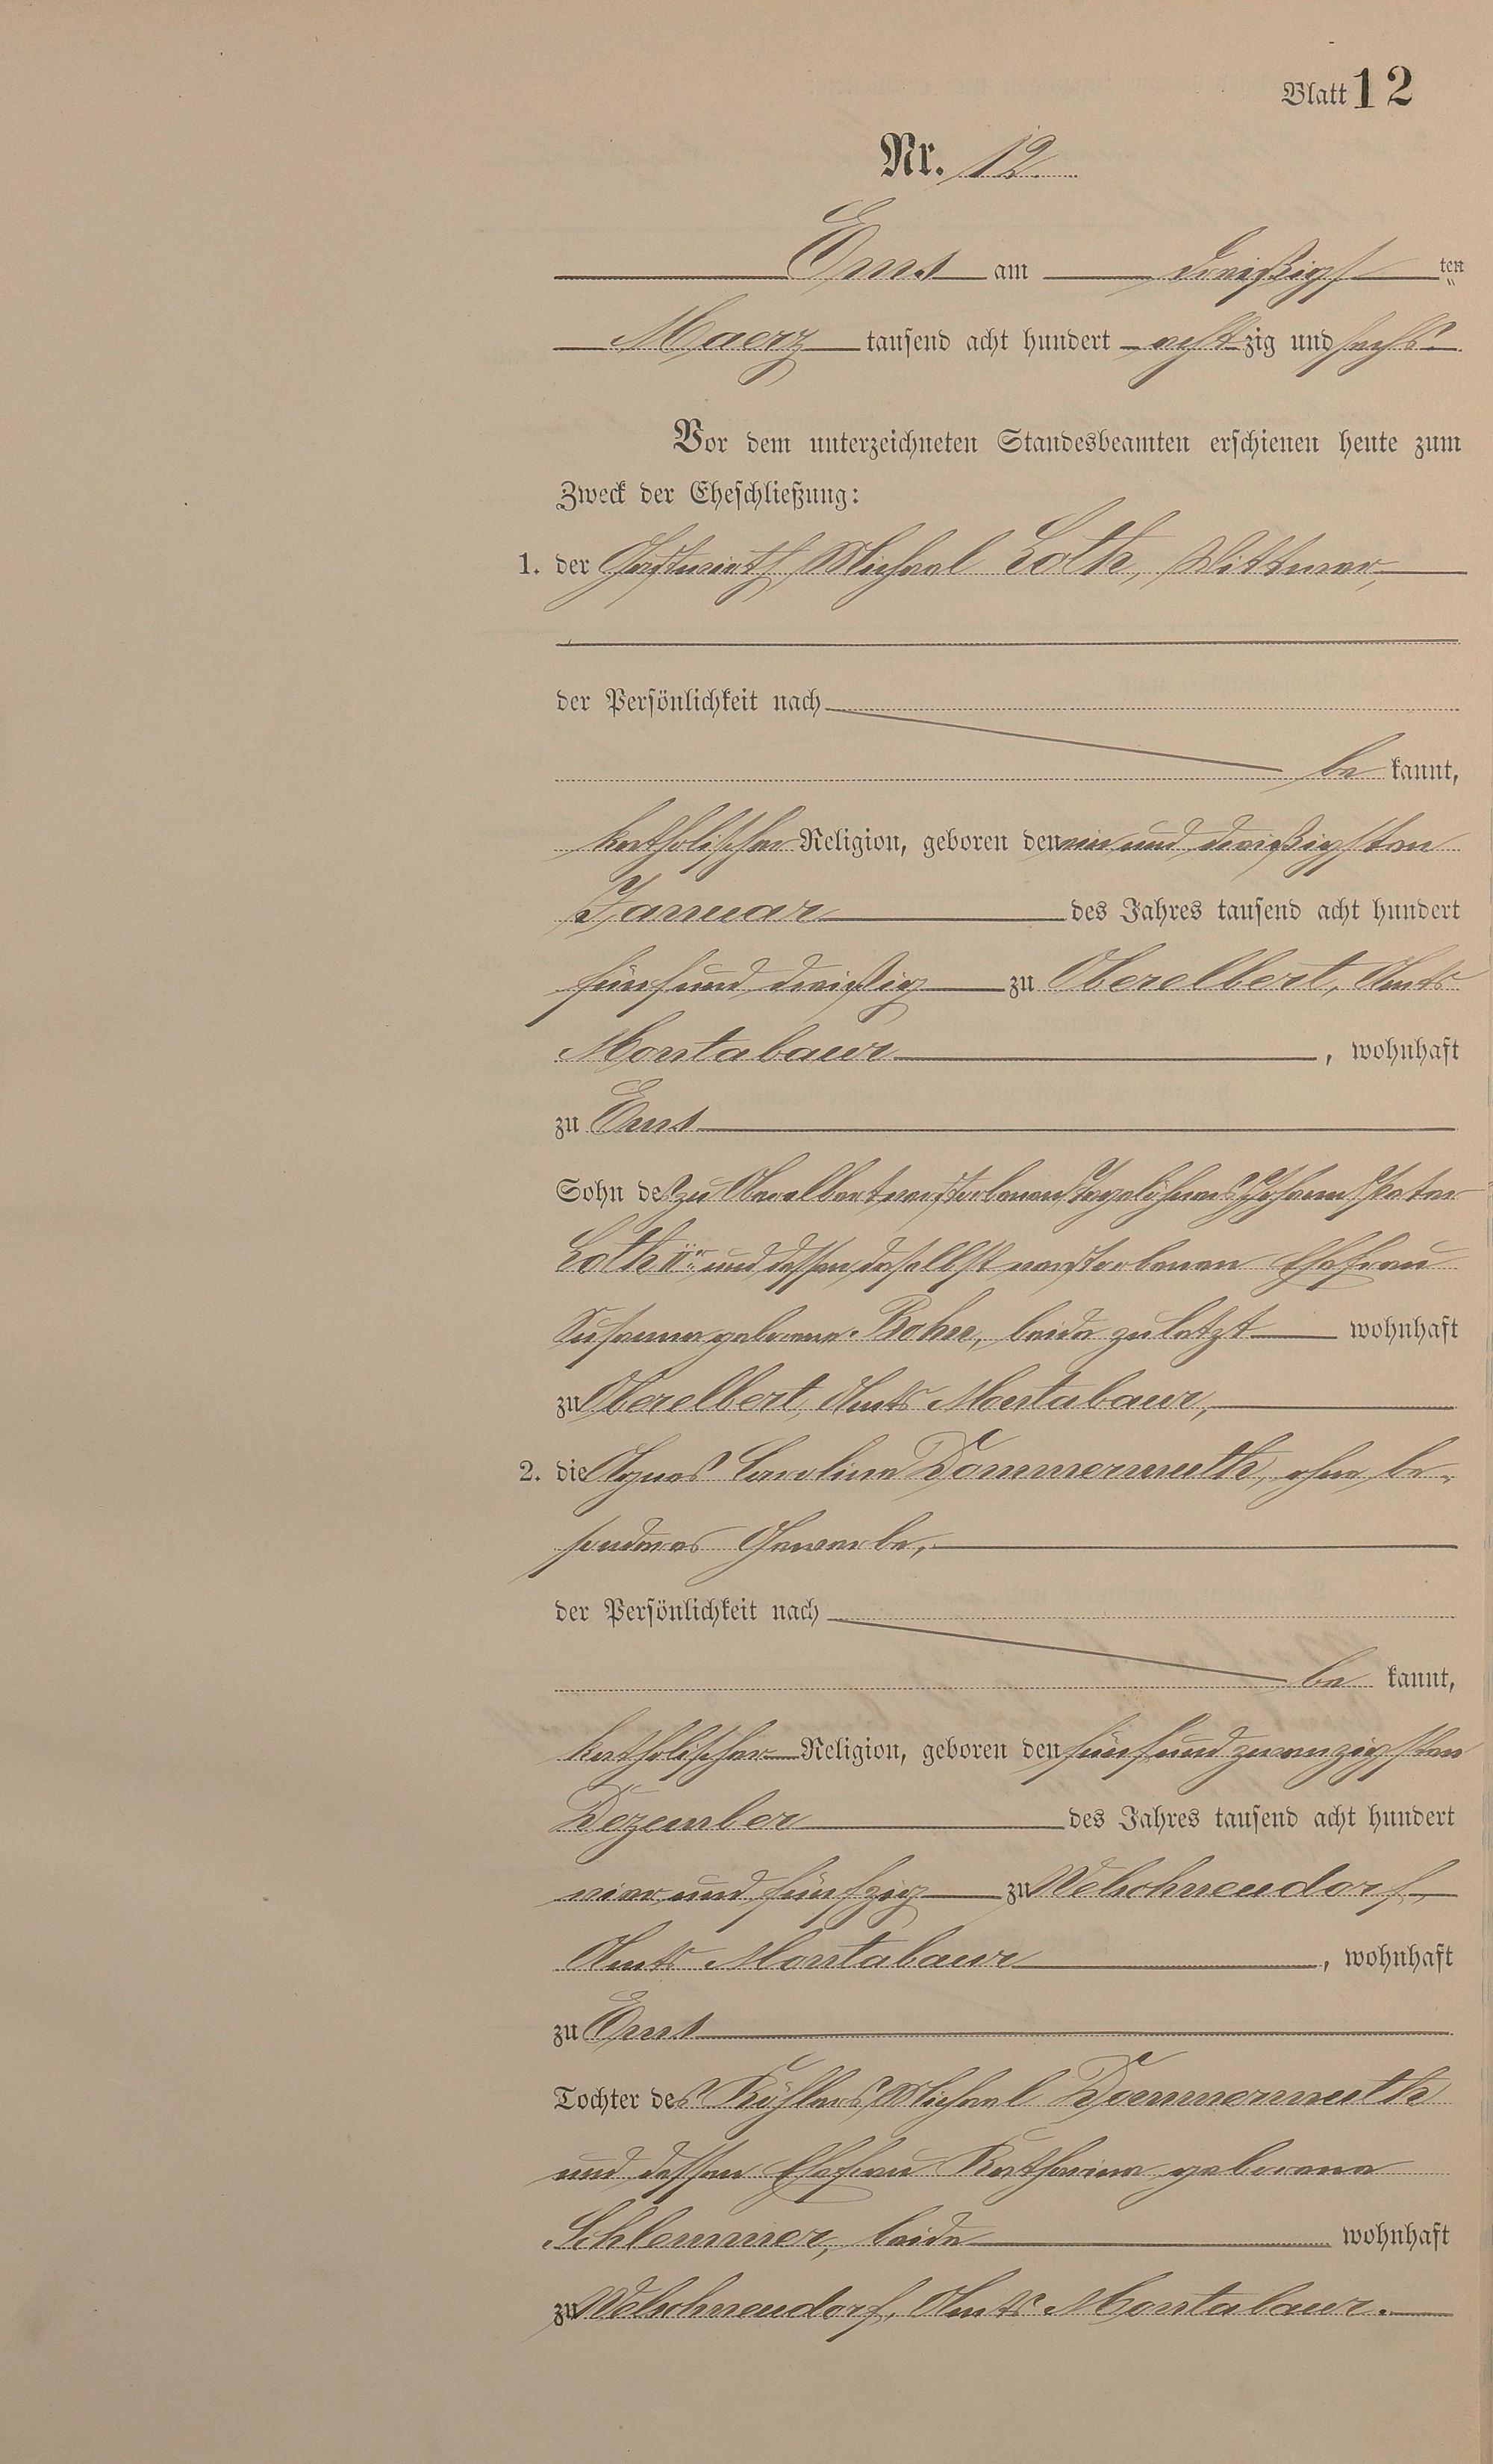 Blatt 12
Nr. 12.
Ems am dreißigsten
Maerz tausend acht hundert achtzig und sechs.
Vor dem unterzeichneten Standesbeamten erschienen heute zum
Zweck der Eheschließung:
1. der Gastwirth Michael Loth, Wittwer,
der Persönlichkeit nach
be kannt,
katholischer Religion, geboren den ein und dreißigsten
Januar des Jahres tausend acht hundert
fünf und dreißig zu Oberelbert, Amts
Montabaur, wohnhaft
zu Ems
Sohn des zu Oberelbert verstorbenen Tagelöhners Johann Peter
Loth IIr und dessen daselbst verstorbenen Ehefrau
Susanna geborene Boher, beide zuletzt wohnhaft
zu Oberelbert, Amts Montabaur,
2. die Agnes Caroline Dommermuth, ohne be-
sonderes Gewerbe,
der Persönlichkeit nach
be kannt,
katholischer Religion, geboren den fünf und zwanzigsten
Dezember des Jahres tausend acht hundert
vier und fünfzig zu Welschneudorf,
Amts Montabaur, wohnhaft
zu Ems
Tochter des Köhlers Michael Dommermuth
und dessen Ehefrau Katharina geborene
Schlemmer, beide wohnhaft
zu Welschneudorf, Amts Montabaur.